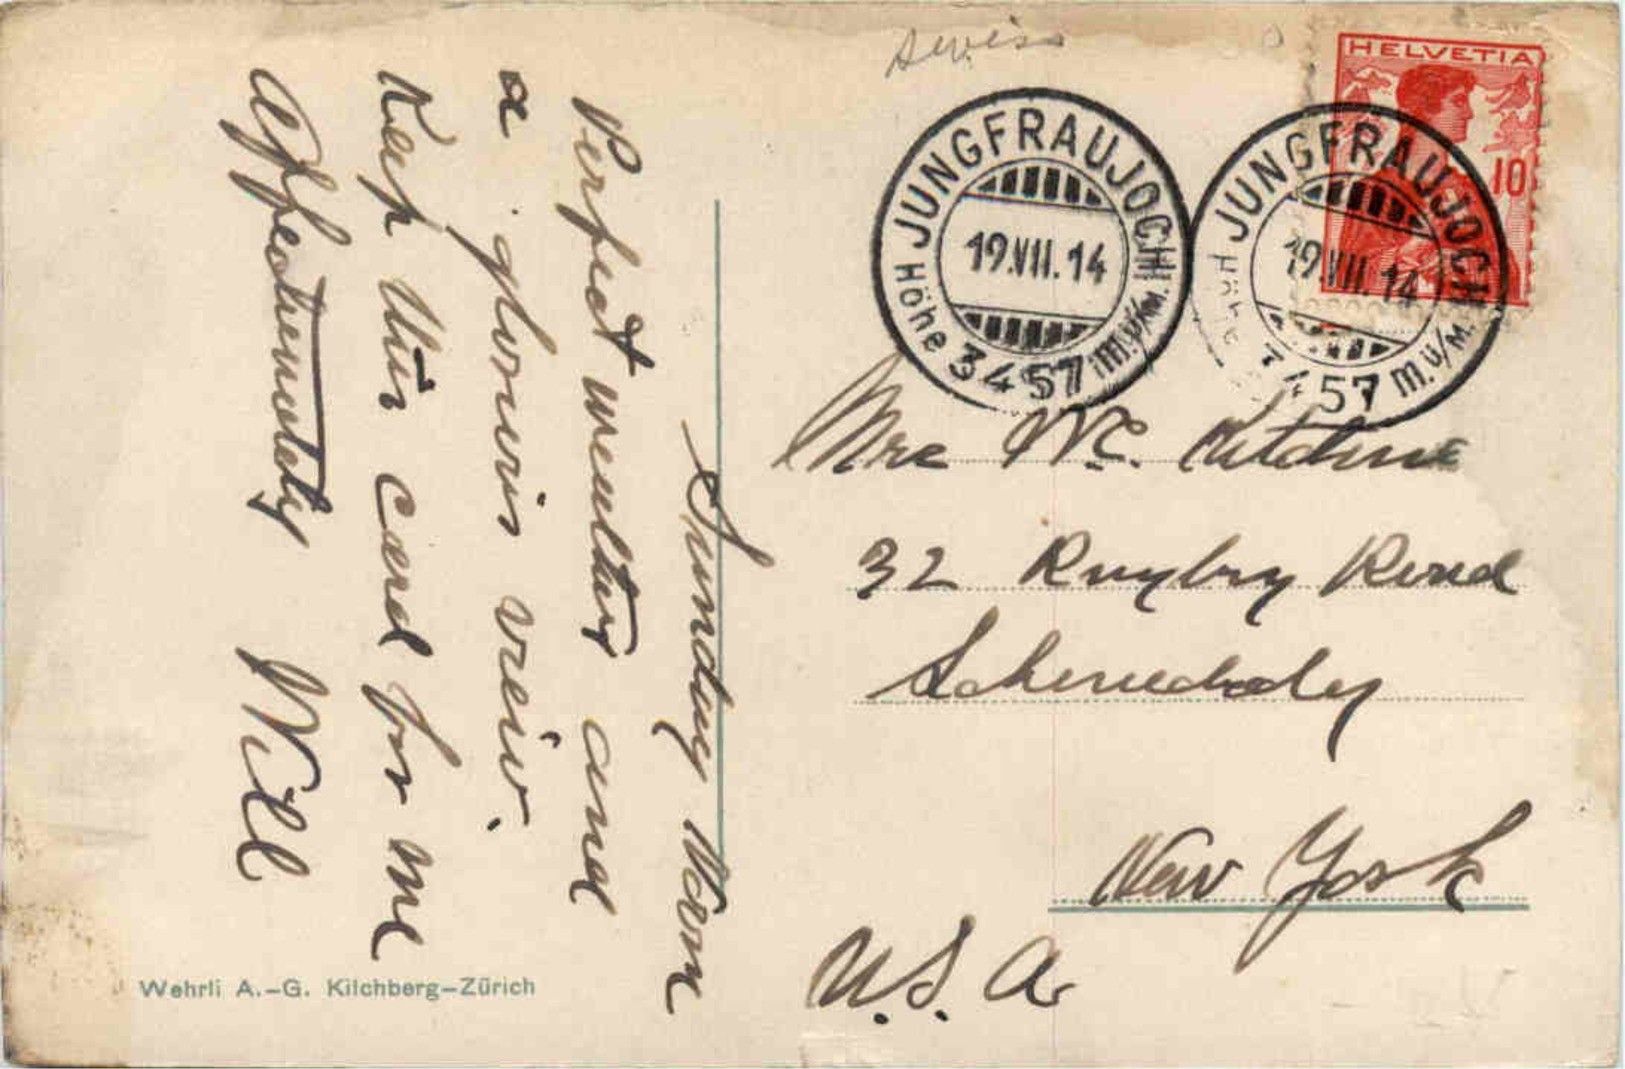 Swiss
HELVETIA
10
JUNGFRAUJOCH
19.VII.14
Höhe 3457 m.ü/M.
JUNGFRAUJOCH
19.VII.14
Höhe 3457 m.ü/M.
Sunday Morn
Perfect weather and
a glorious view.
Keep this card for me
Affectionately Will
Mrs W.C.
32 Rugby Road
Schenectady
New York
U.S.A
Wehrli A.-G. Kilchberg-Zürich